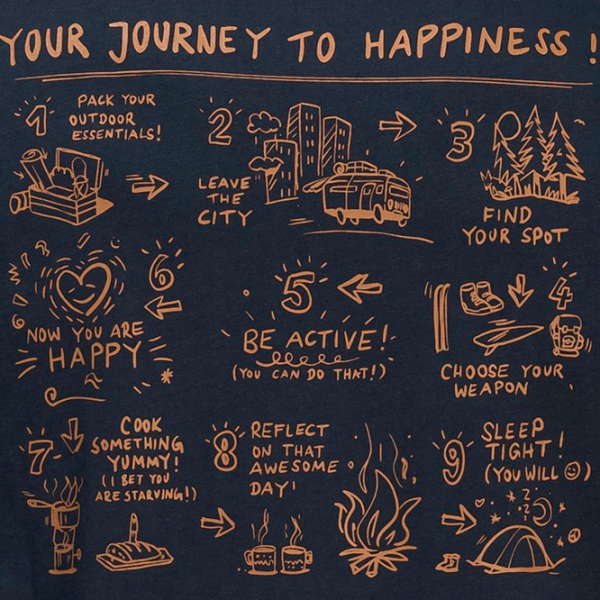 YOUR JOURNEY TO HAPPINESS !
1
PACK YOUR
OUTDOOR
ESSENTIALS!
2
LEAVE
THE
CITY
3
FIND
YOUR SPOT
4
CHOOSE YOUR
WEAPON
5
BE ACTIVE!
(YOU CAN DO THAT!)
6
NOW YOU ARE
HAPPY
7
COOK
SOMETHING
YUMMY!
(I BET YOU
ARE STARVING!)
8
REFLECT
ON THAT
AWESOME
DAY!
9
SLEEP
TIGHT!
(YOU WILL ☺)
z
z
z